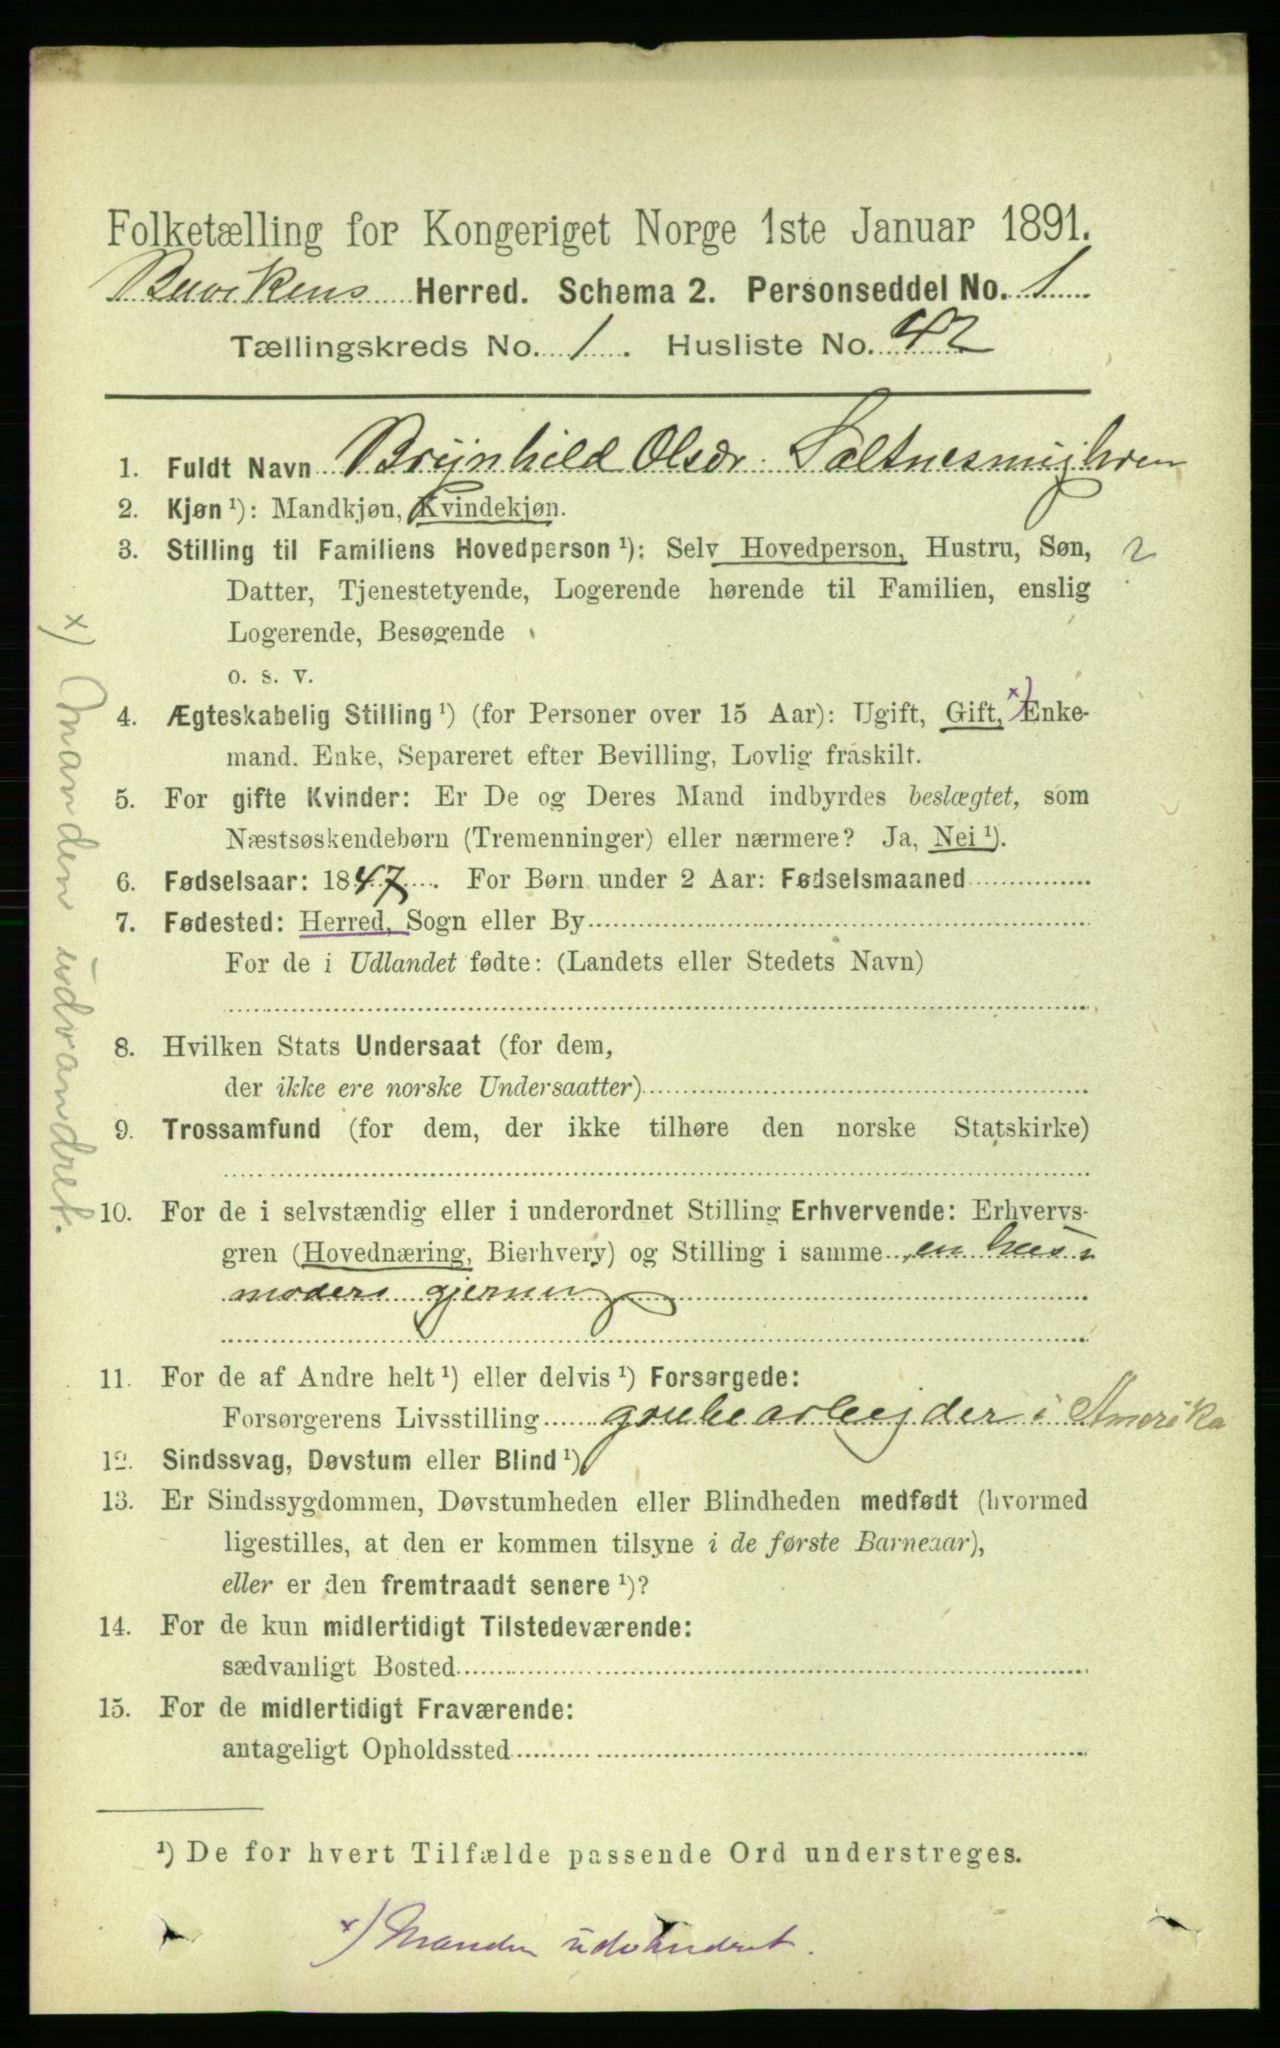 Folketælling for Kongeriget Norge 1ste Januar 1891.
Buvikens Herred. Schema 2. Personseddel No. 1
Tællingskreds No. 1. Husliste No. 42
1. Fuldt Navn Brynhild Olsdr. Saltnesmyhren
2. Kjøn ¹): Mandkjøn, Kvindekjøn.
3. Stilling til Familiens Hovedperson ¹): Selv Hovedperson, Hustru, Søn, 2
Datter, Tjenestetyende, Logerende hørende til Familien, enslig
Logerende, Besøgende
o. s. v.
4. Ægteskabelig Stilling ¹) (for Personer over 15 Aar): Ugift, Gift, x) Enke-
mand. Enke, Separeret efter Bevilling, Lovlig fraskilt.
5. For gifte Kvinder: Er De og Deres Mand indbyrdes beslægtet, som
Næstsøskendebørn (Tremenninger) eller nærmere? Ja, Nei ¹).
6. Fødselsaar: 1847. For Børn under 2 Aar: Fødselsmaaned
7. Fødested: Herred, Sogn eller By
For de i Udlandet fødte: (Landets eller Stedets Navn)
8. Hvilken Stats Undersaat (for dem,
der ikke ere norske Undersaatter)
9. Trossamfund (for dem, der ikke tilhøre den norske Statskirke)
10. For de i selvstændig eller i underordnet Stilling Erhvervende: Erhvervs-
gren (Hovednæring, Bierhverv) og Stilling i samme en hus-
moders gjerning
11. For de af Andre helt ¹) eller delvis ¹) Forsørgede:
Forsørgerens Livsstilling grubearbejder i Amerika
12. Sindssvag, Døvstum eller Blind ¹)
13. Er Sindssygdommen, Døvstumheden eller Blindheden medfødt (hvormed
ligestilles, at den er kommen tilsyne i de første Barneaar),
eller er den fremtraadt senere ¹)?
14. For de kun midlertidigt Tilstedeværende:
sædvanligt Bosted
15. For de midlertidigt Fraværende:
antageligt Opholdssted
¹) De for hvert Tilfælde passende Ord understreges.
x) Manden udvandret.
x) Manden udvandret.